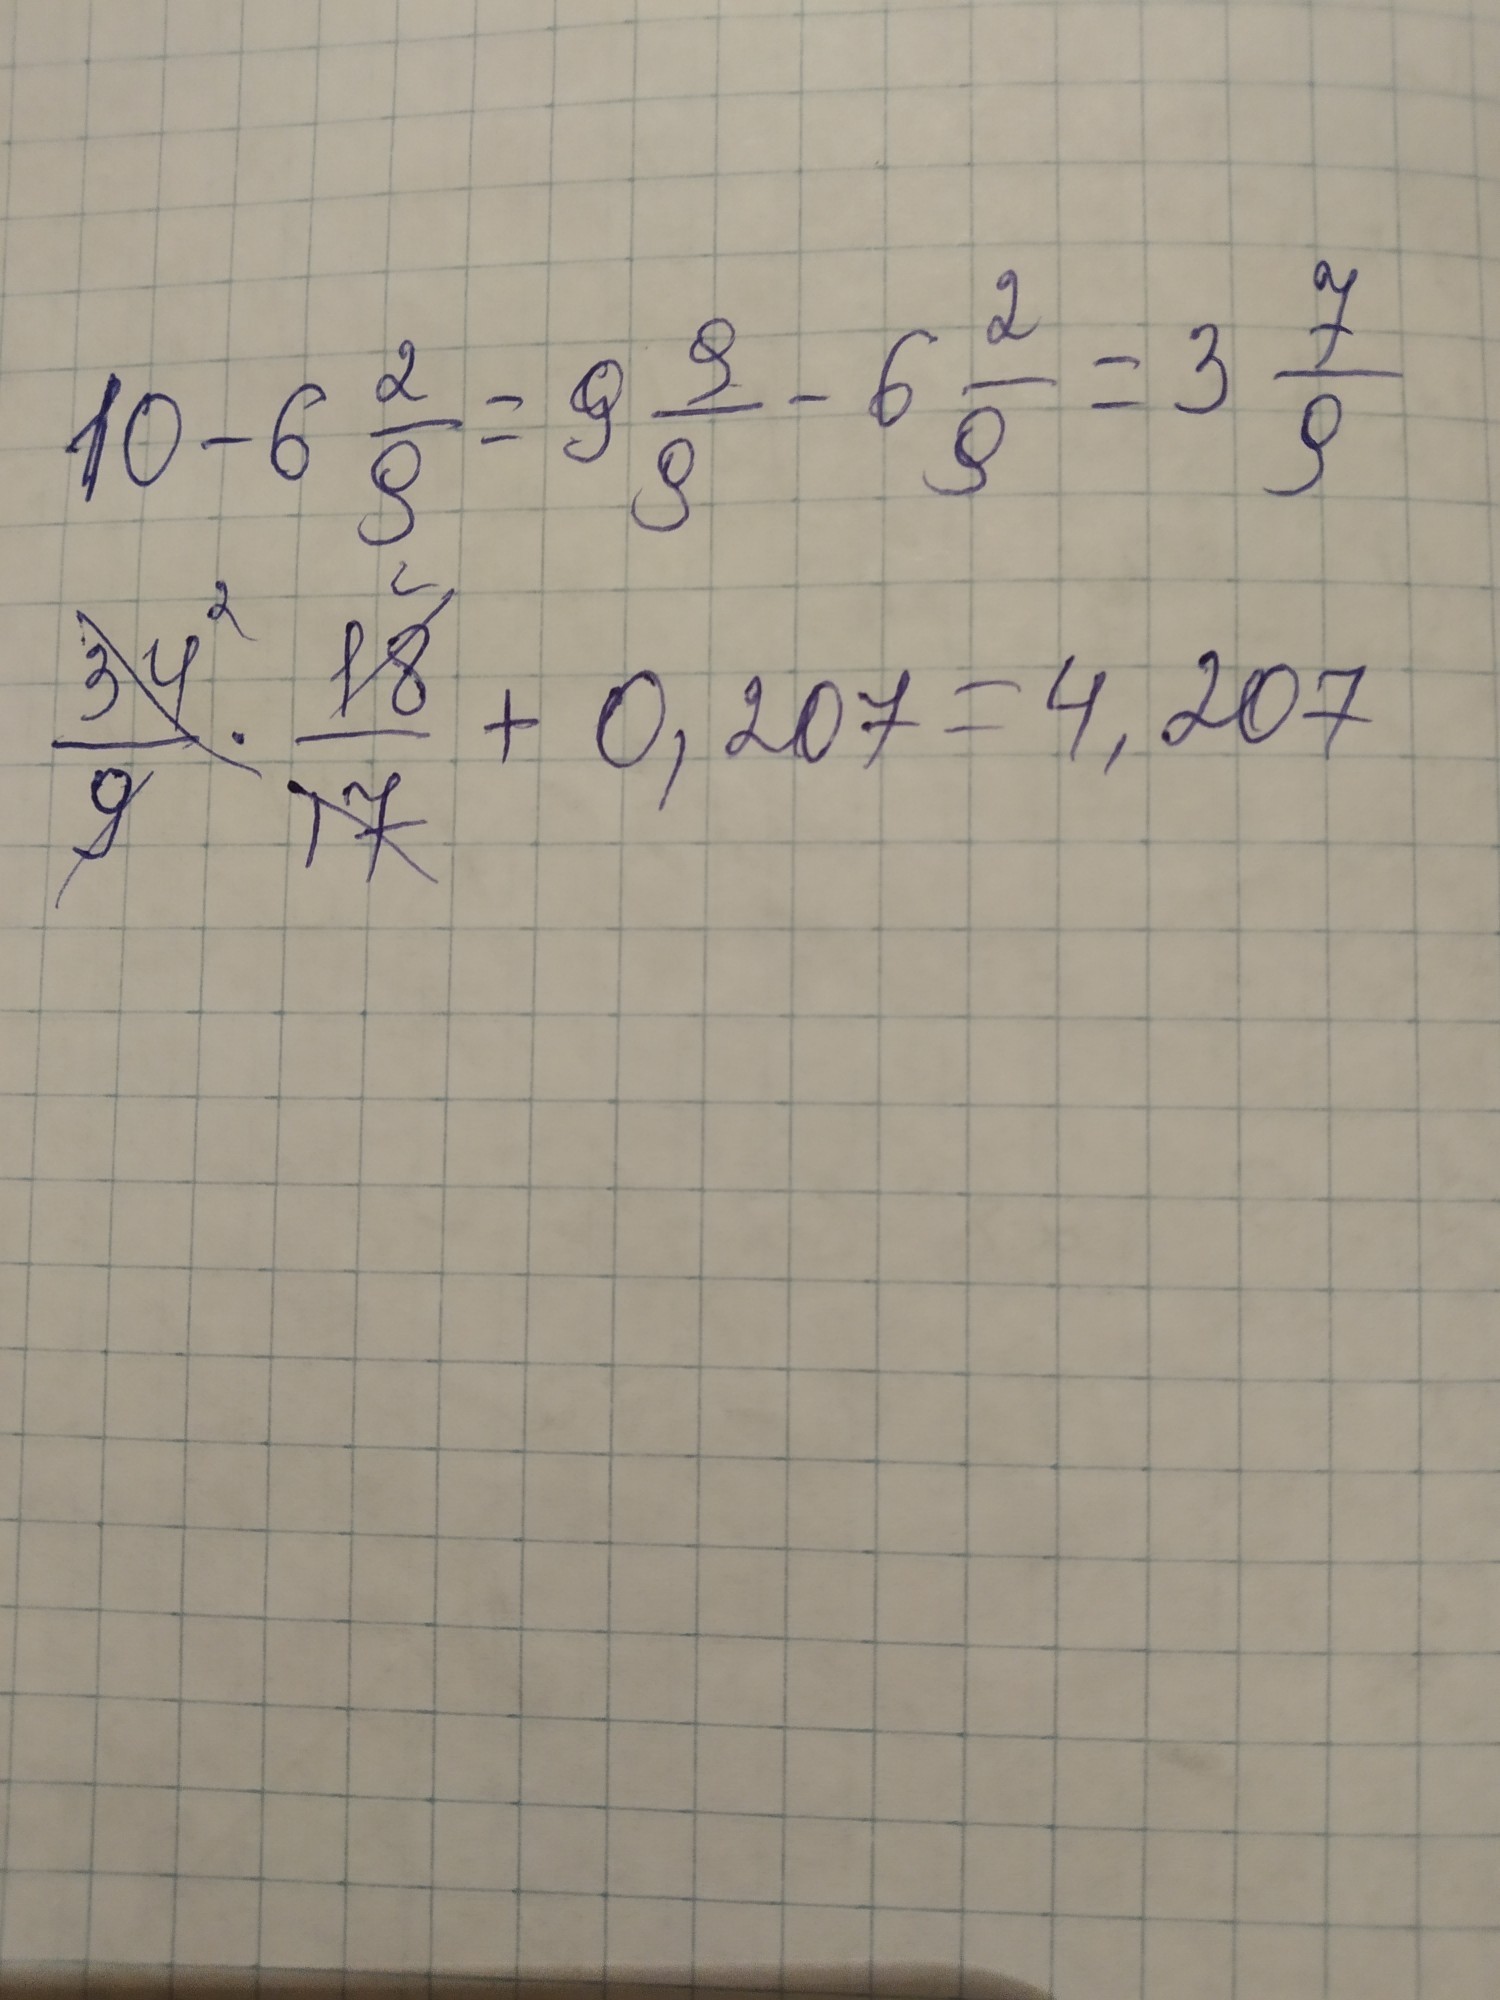 10 - 6 2/9 = 9 9/9 - 6 2/9 = 3 7/9
34/9 ² · 18/17 ² + 0,207 = 4,207